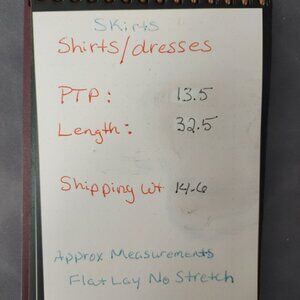 Skirts
Shirts/dresses
PTP: 13.5
Length: 32.5
Shipping wt 14.6
Approx Measurements
Flat Lay No Stretch